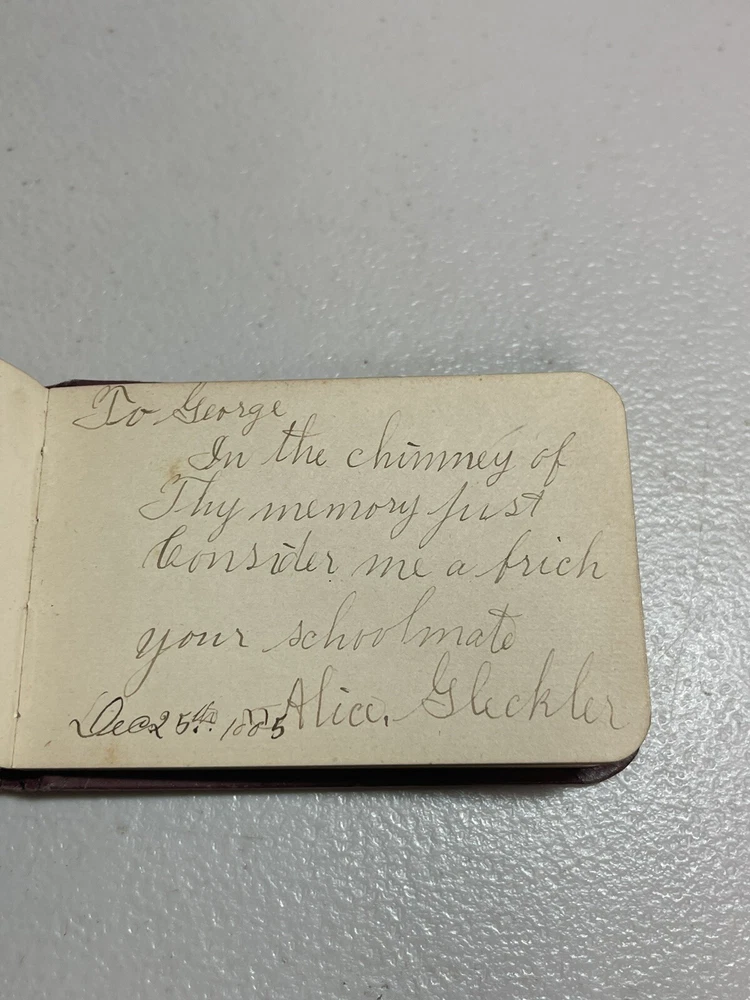 To George
In the chimney of
Thy memory just
Consider me a brich
your schoolmate
Alice. Gleckler
Dec 25th. 1885